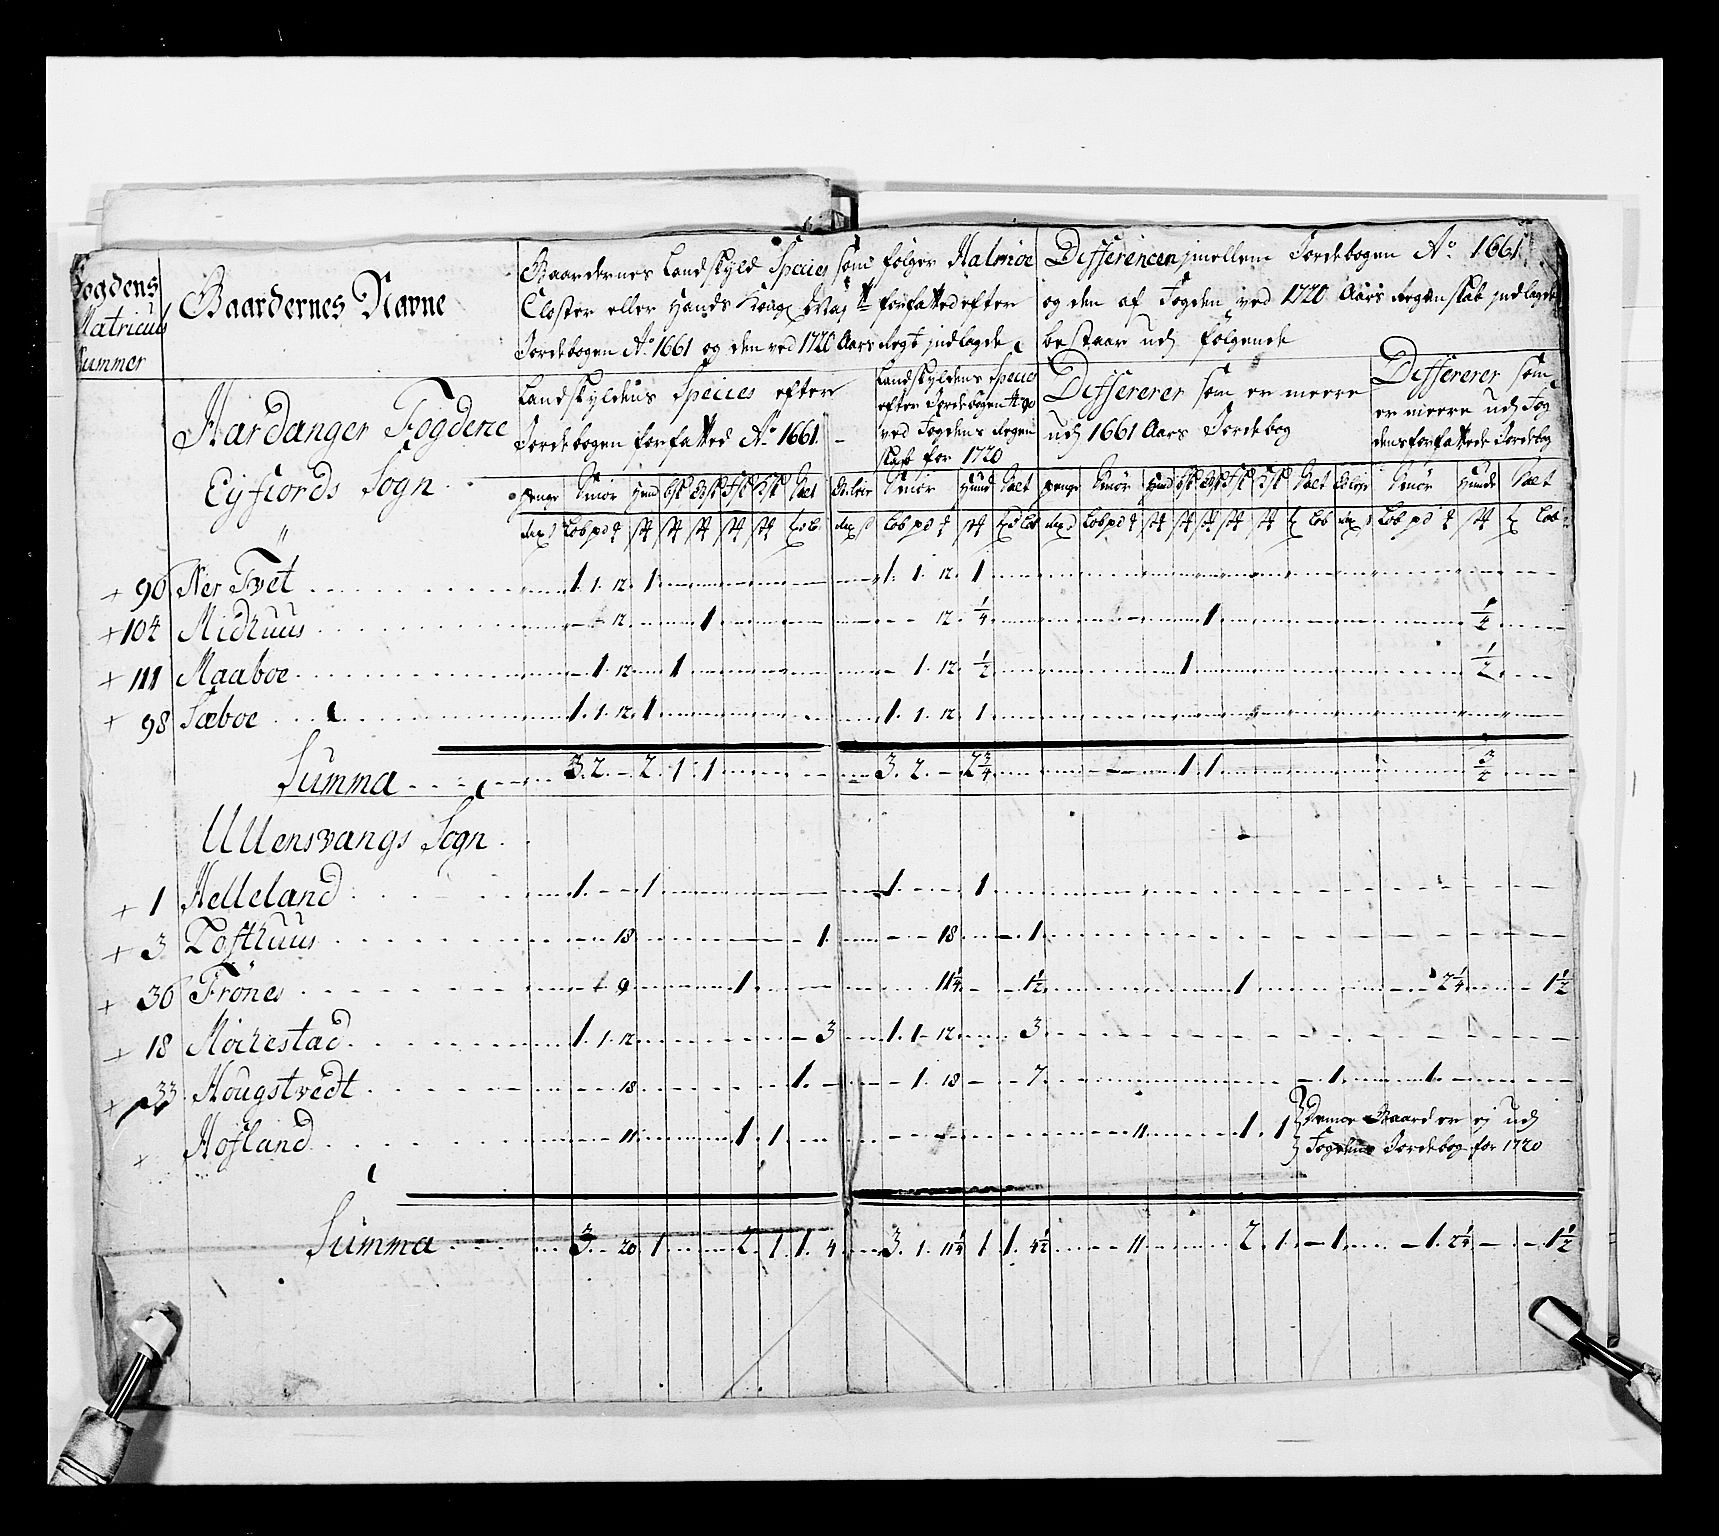 Fogdens
Matricul
Nummer
Gaardernes Navne
Gaardernes Landskyld Species som følger Halsnøe
Closter eller Hands Kong Maj forfatted efter
Jordebogen A° 1661 og den ved 1720 Aars Regs indlagde
Differencen imellem Jordebogen A° 1661
og den af Fogden ved 1720 Aars Regenskab indlagde
bestaar udj følgende
Landskyldens Species efter
Jordebogen forfatted A° 1661
Landskyldens Species
efter Jordebogen
ved Fogdens Regen
skab for 1720
Differerer som er meere
udj 1661 Aars Jordebog
Differerer som
er meere udj Fog
dens forfattede Jordebog
Hardanger Fogderie
Eyfiords Sogn
penge Smør Hud Salt Smør Hund Salt penge Smør Hud Salt Smør Hunde Salt
+ 90 Ner Tvet 1. 1. 12. 1 1. 1. 12. 1
+ 104 Midhuus 12. 1 12. 1/4 1 1/4
+ 111 Maaboe 1. 12. 1 1. 12. 1/2 1 1/2
+ 98 Sæboe 1. 1. 12. 1 1. 1. 12. 1
Summa 3. 2. - 2. 1. 1 3. 2. - 2 3/4 1. 1 3/4
Ullensvangs Sogn
+ 1 Helleland 1. - - 1 1. - - 1
+ 3 Lofthuus 18 1. 18 1
+ 36 Frönes 9 1 11 1/4 1 1/2 1 2 1/4 1 1/2
+ 18 Morkestad 1. 1. 12 3 1. 1. 12 3
+ 33 Hougstvedt 18 1. 1. 18 7 1. 1.
+ Hofland 11 1. 1 11 1. 1 Denne Gaard er ej udj
Fogdens Jordebog for 1720
Summa 3. - 20 1 2. 1. 1. 4 3. 1. 11 1/4 1 1. 4 1/2 11 2. 1. 1 1. 2 1/4 1 1/2